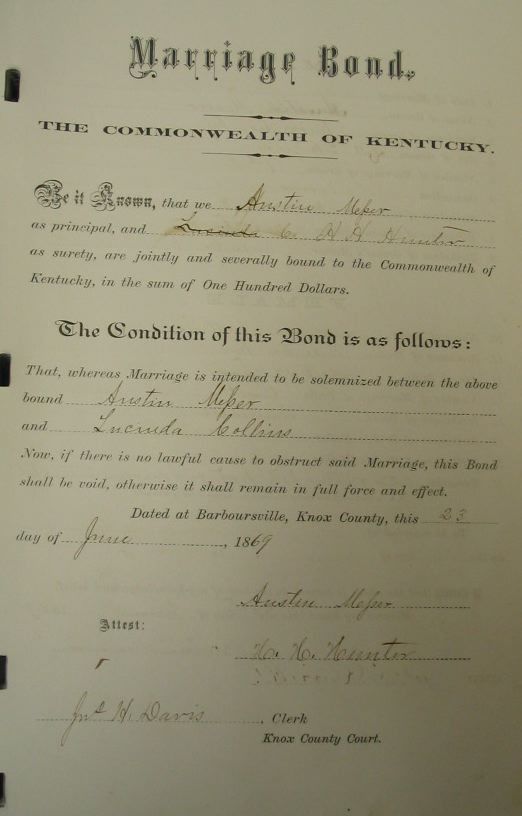 Marriage Bond.
THE COMMONWEALTH OF KENTUCKY.
Be it Known, that we Austin Meſser
as principal, and Lucinda C. H H Hunter
as surety, are jointly and severally bound to the Commonwealth of
Kentucky, in the sum of One Hundred Dollars.
The Condition of this Bond is as follows:
That, whereas Marriage is intended to be solemnized between the above
bound Austin Meſser
and Lucinda Collins
Now, if there is no lawful cause to obstruct said Marriage, this Bond
shall be void, otherwise it shall remain in full force and effect.
Dated at Barboursville, Knox County, this 23
day of June, 1869
Austin Meſser
Attest:
H. H. Hunter
Jnº H. Davis, Clerk
Knox County Court.